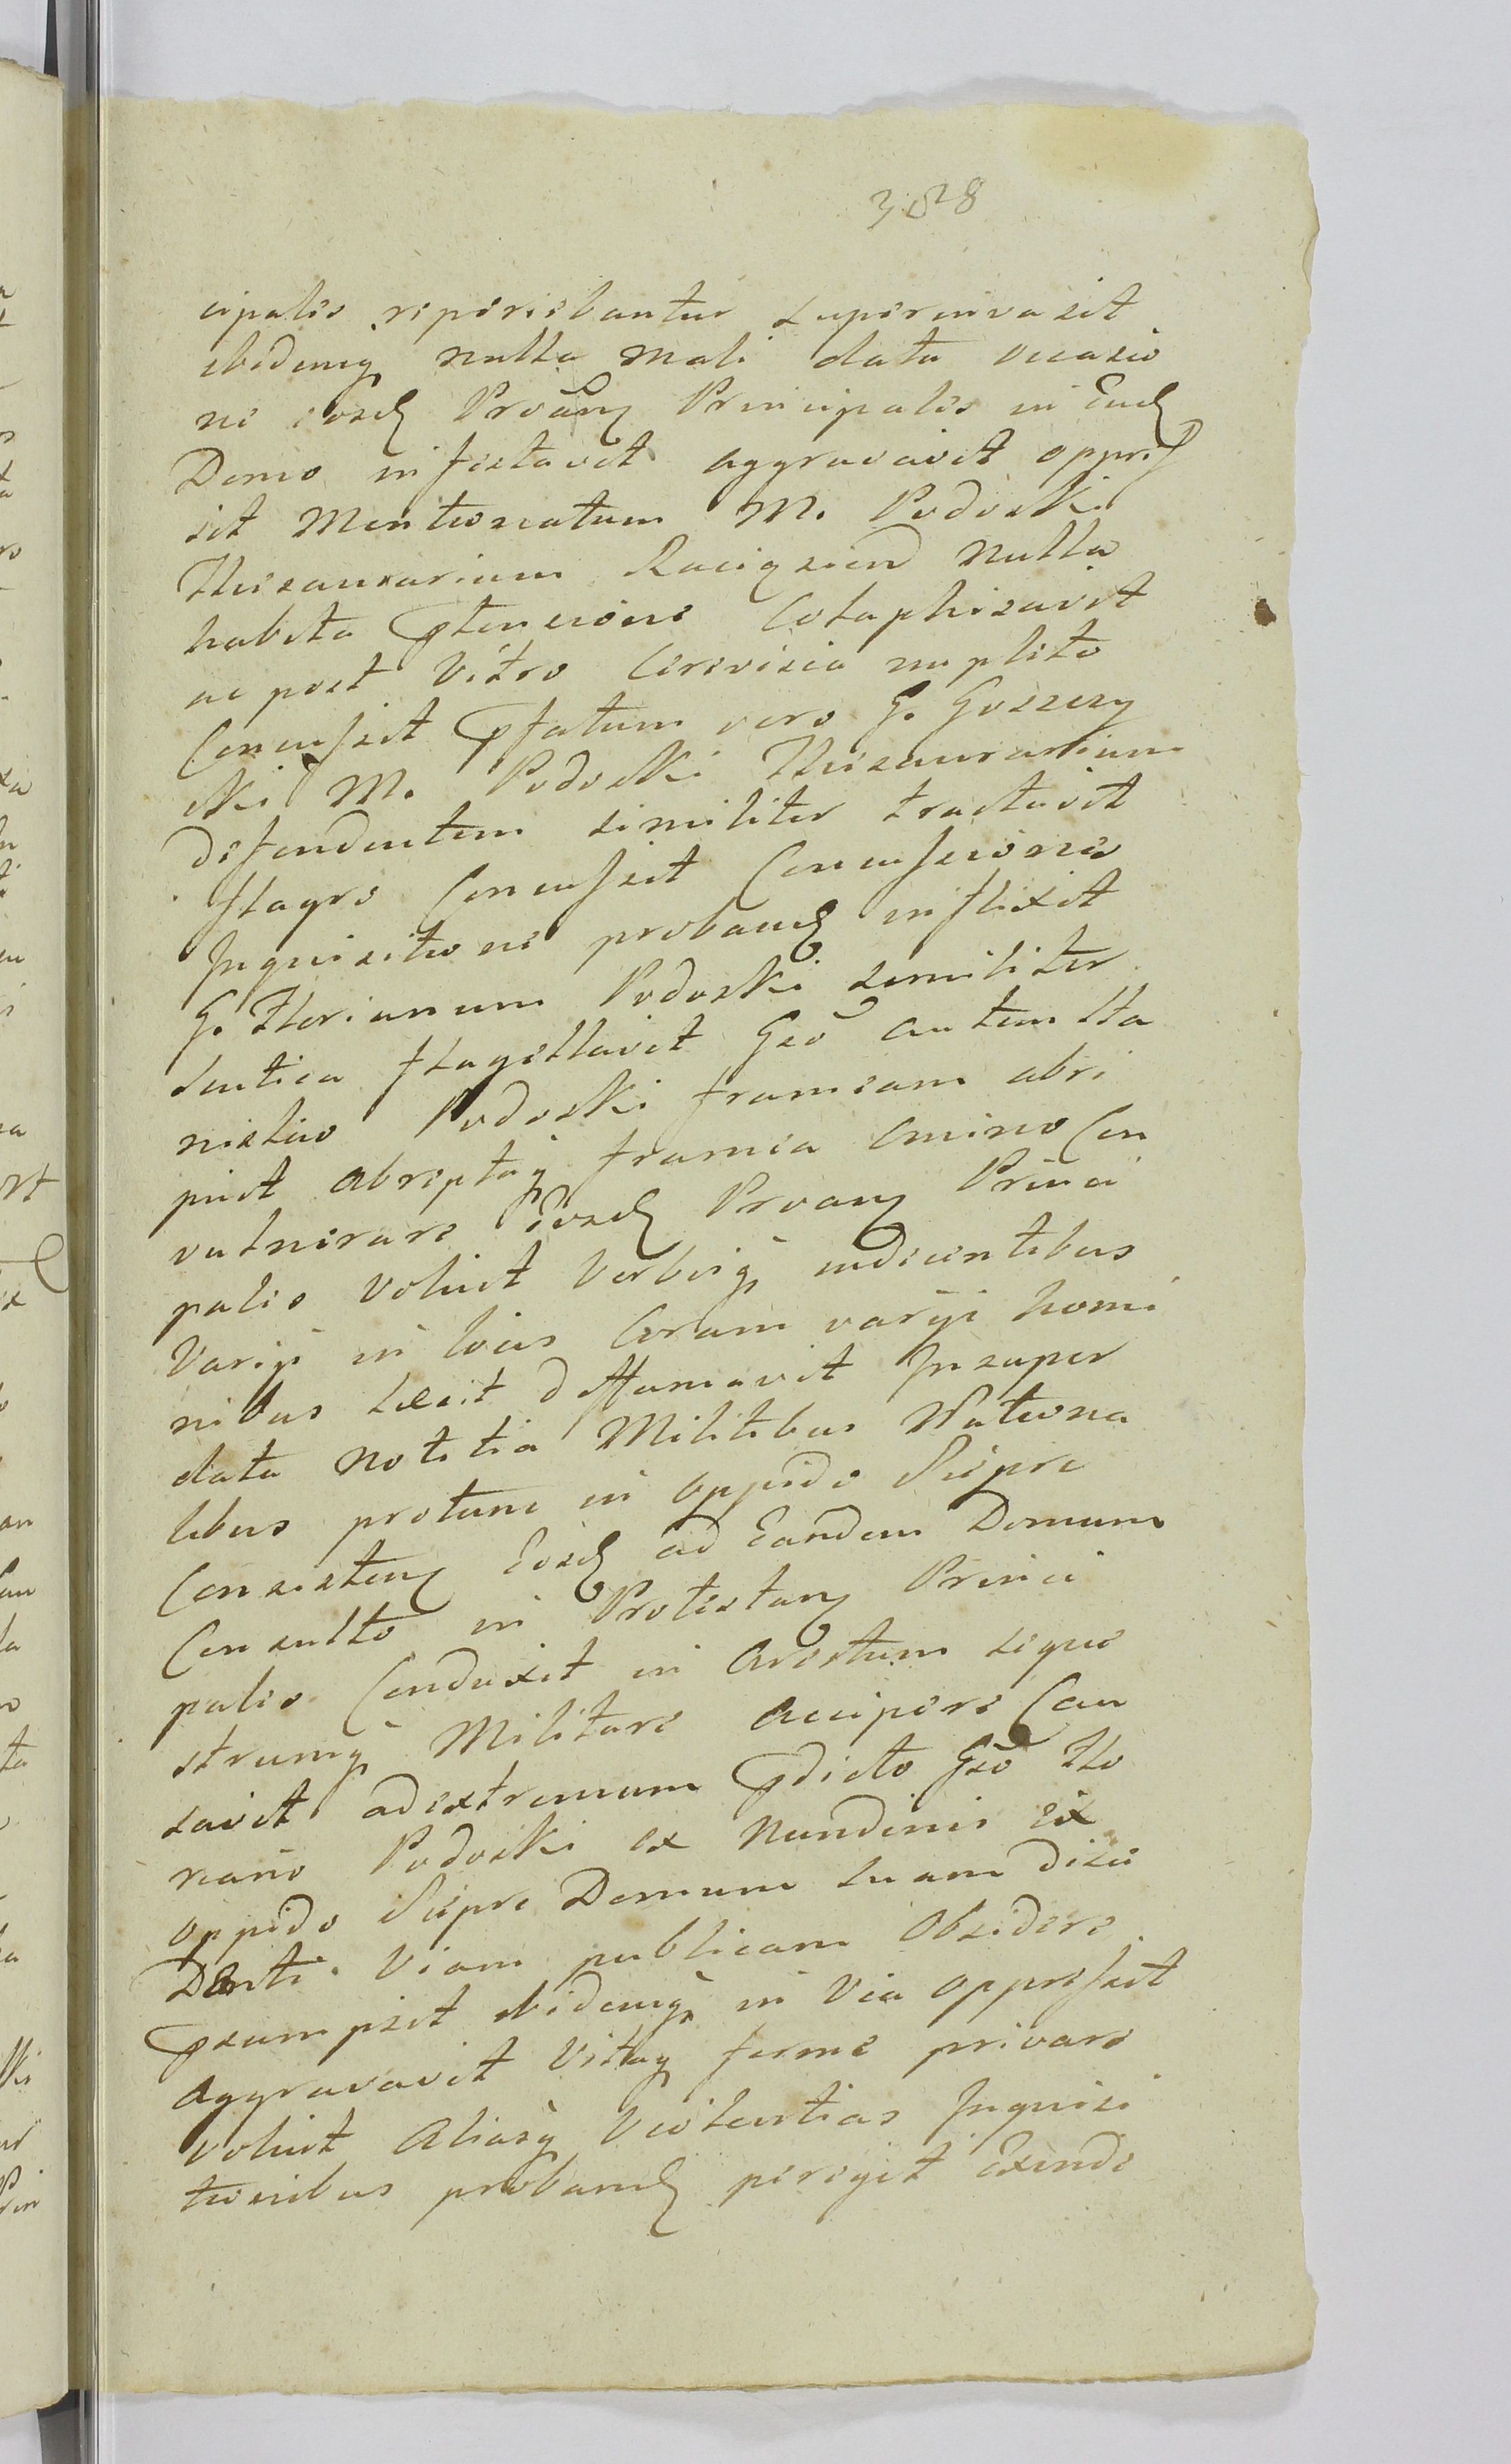 328
cipales reperiebantur superinvasit
ibidemq nulla mali data occasio
ne eosd Protan Principales in Ead
Domo infestavit aggravavit oppres
sit Mentionatum M. Podoski
Thesaurarium Raciązien nulla
habita ptensione Colaphisavit
ac post Vitro Cerevisia impleto
Concussit pfatum vero G.
ski M. Podoski Thesaurarium
defendentem similiter tractavit
flagro Concussit Concussiones
Inquisitione proband inflixit
G. Florianum Podoski similiter
scutica flagellavit Gso autem Sta
nislao Podoski frameam abri
puit abreptaq framea omnes Con
vulnerare eosd Protan Princi
pales Voluit Verbisq indicentibus
Varijs in locis Coram varijs homi
nibus lesit diffamavit Insuper
data notitia Militibus Nationa
libus protunc in oppido Sierpc
Consisten Eosd ad Eandem Domum
Consulto in Protestan Princi
pales Conduxit in Arestum seque
strumq Militare accipere Cau
savit ad extremum pdicto Gso Flo
riano Podoski ex Nundinis ex
oppido Sierpc Domum suam disce
Denti Viam publicam Obsidere
psumpsit ibidemq in Via oppressit
aggravavit Vitaq ferme privare
voluit Aliasq Violentias Inquisi
tionibus proband peregit Exinde